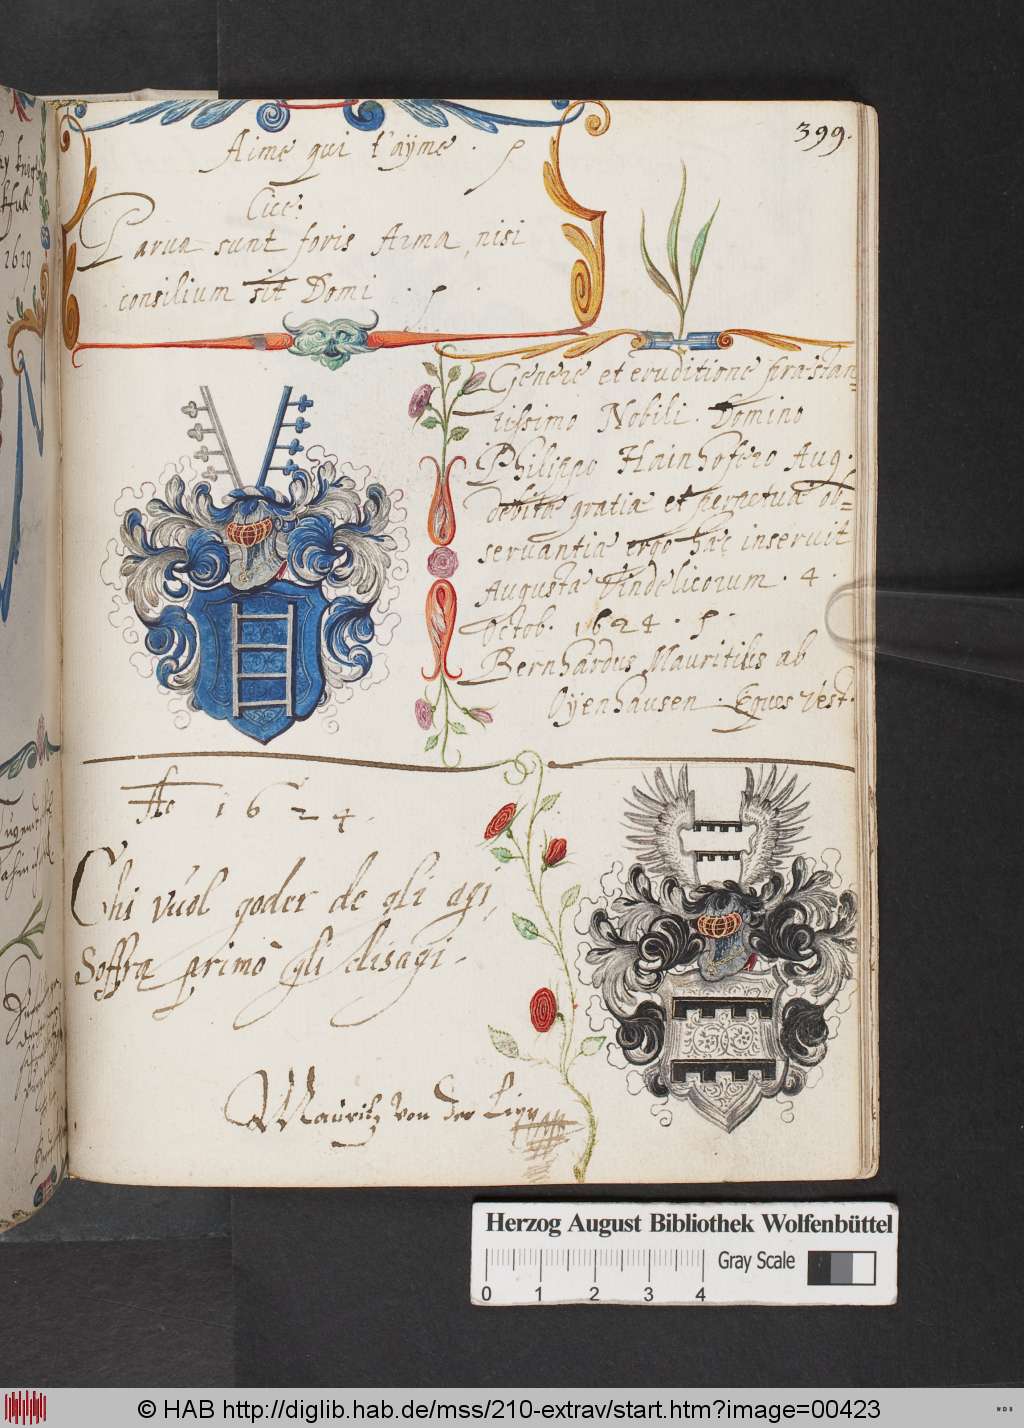 399.
Aime qui t'aÿme.
Cice:
Parua sunt foris Arma, nisi
consilium sit Domi.
Genere et eruditione præstan=
tissimo Nobili. Domino
Philippo Hainhofero Aug.
debita gratia et perpetua ob=
servantia ergo hæc inseruit
Augusta Vindelicorum. 4.
Octob. 1624.
Bernhardus Mauritius ab
Oÿenhausen. Eques Vest.
Aº 1624.
Chi vuol goder de gli agi,
Soffra primo gli disagi.
Mauritz von der
1619
Herzog August Bibliothek Wolfenbüttel
Gray Scale
0 1 2 3 4
© HAB http://diglib.hab.de/mss/210-extrav/start.htm?image=00423
WDB